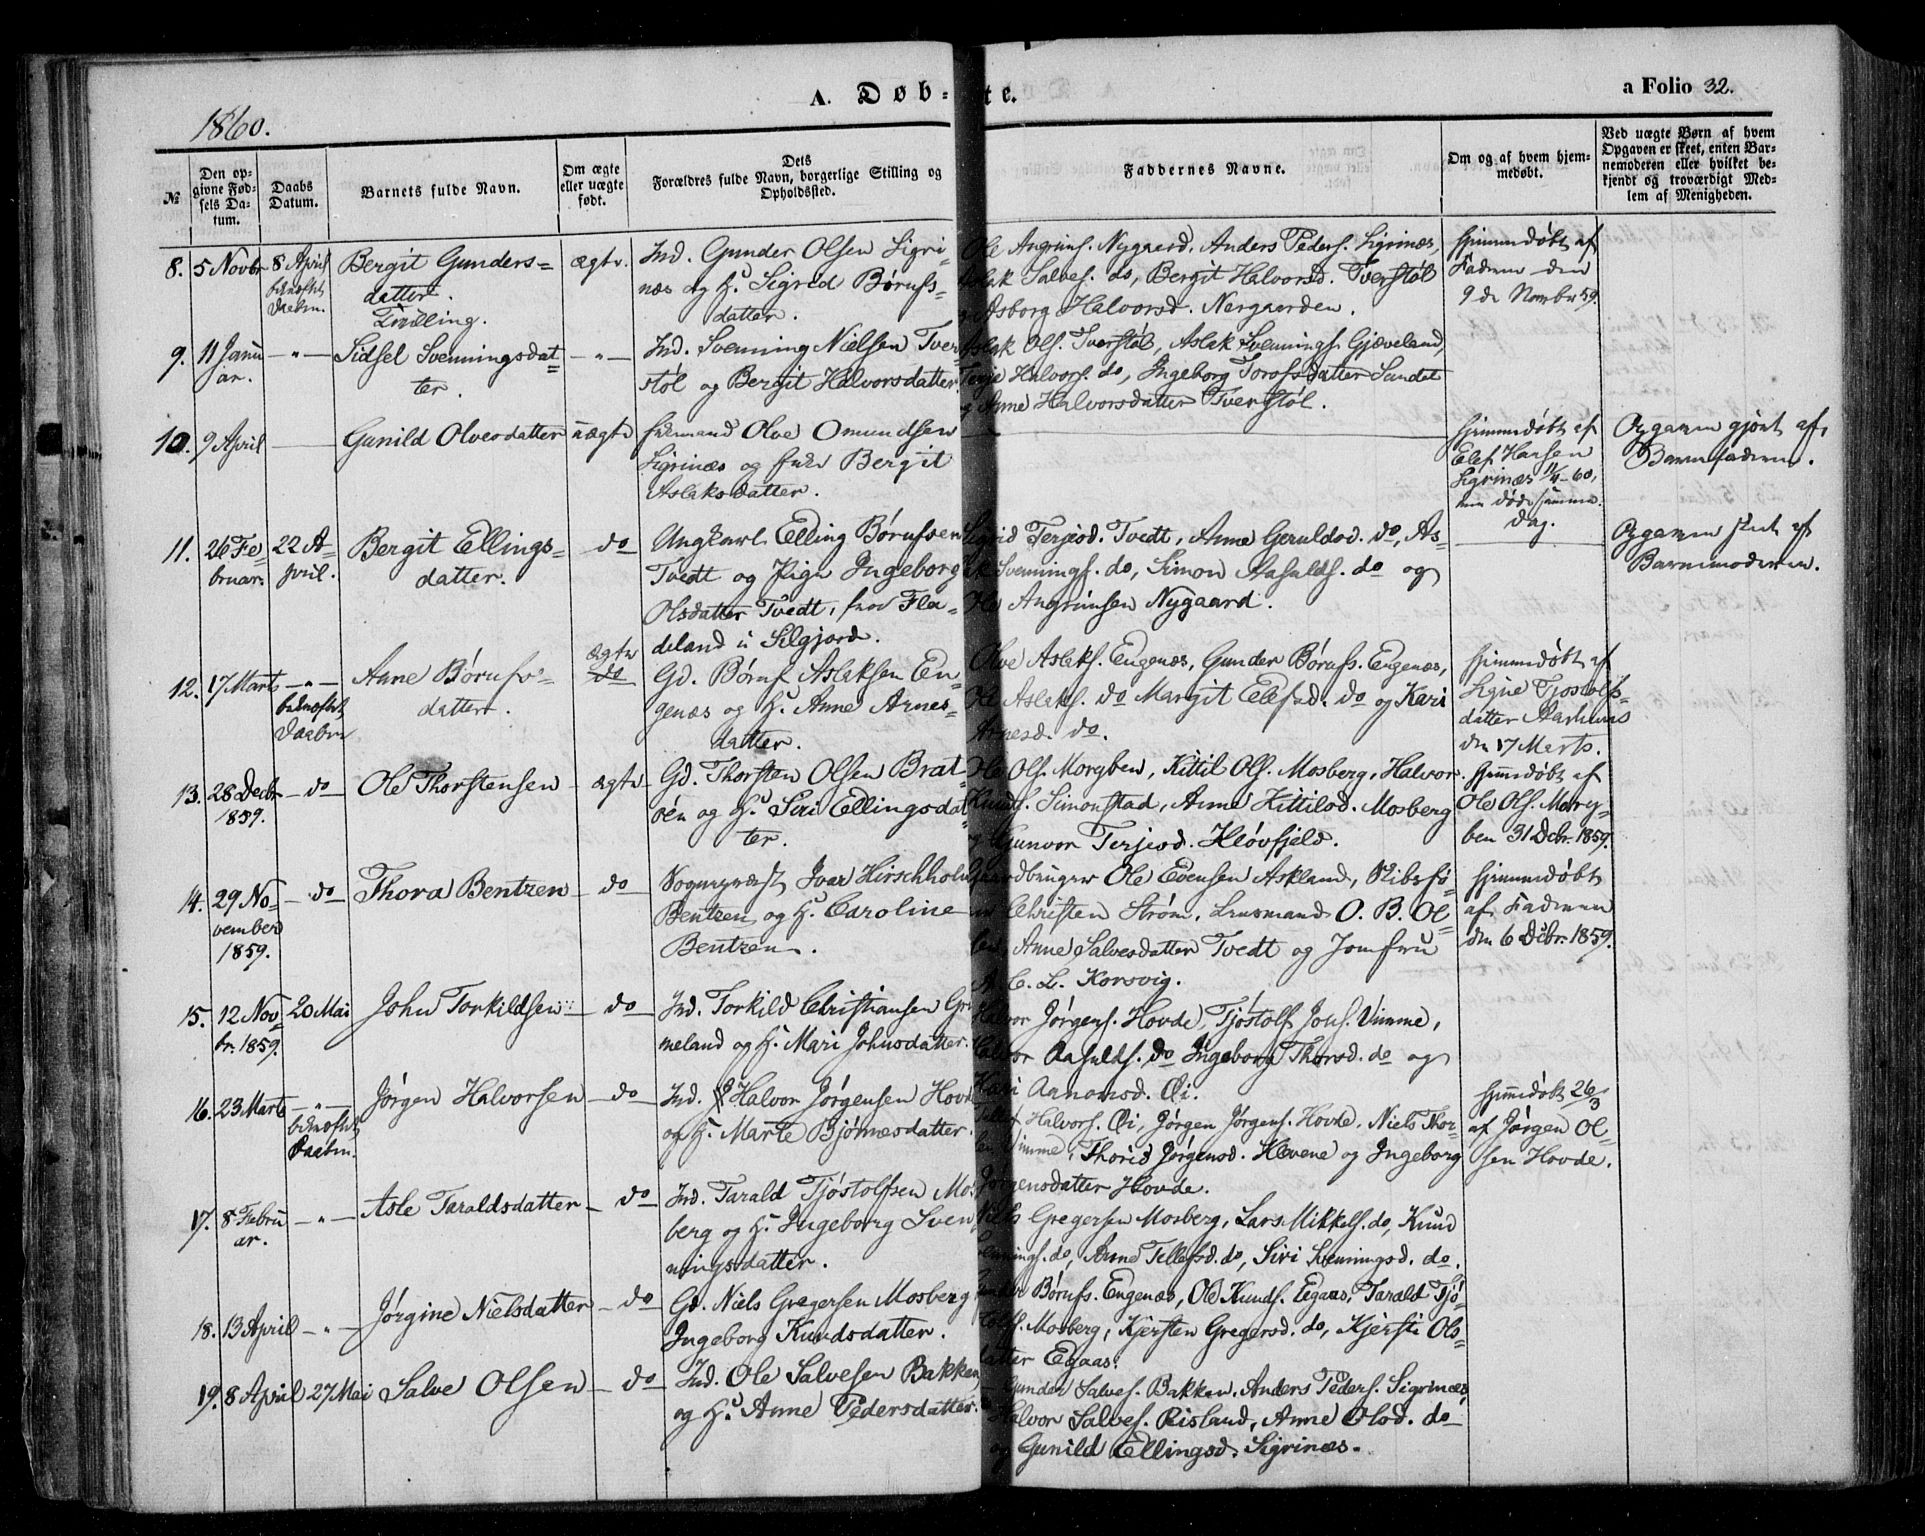 1860.
A. Døb-te.
a Folio 32.
№
Den opgivne Fødsels Datum.
Daabs Datum.
Barnets fulde Navn.
Om ægte eller uægte født.
Dets Forældres fulde Navn, borgerlige Stilling og Opholdssted.
Faddernes Navne.
Om og af hvem hjemmedøbt.
Ved uægte Børn af hvem Opgaven er skeet, enten Barnemoderen eller hvilket bekjendt og troværdigt Medlem af Menigheden.
8. 5 Novbr 8 April Bergit Gunders- ægte. Ind. Gunder Olsen Sigri-
bekræftet Daaben. datter. næs og H. Sigrid Børufs-
Tvilling. datter.
Ole Angrims. Nygaard, Anders Peders. Sigrinæs,
Aslak Salves. do, Bergit Halvorsd. Tverstøl
Asborg Halvorsd. Nergaarden.
Hjemmedøbt af
Faderen den
9de Novbr 59.
9. 11 Janu -„- Sidsel Svenningsdat- -„- Ind. Svenning Nielsen Tver-
ar. ter. støl og Bergit Halvorsdatter
Aslak Ols. Tverstøl, Aslak Svennings. Gjæveland,
Terje Halvors. do, Ingeborg Torofsdatter Sundet
og Anne Halvorsdatter Tverstøl.
10. 9 April Gunild Olvesdatter uægte Olve Omundsen
Sigrinæs og Bergit
Aslaksdatter.
Hjemmedøbt af
Elef Hansen
Sigrinæs 11/4-60,
døde samme
Dag.
Opgaven gjort af
Barnefaderen.
11. 26 Fe 22 A- Bergit Ellings- do Ungkarl Elling Børufsen
bruar. pril. datter. Tvedt og Pige Ingeborg
Olsdatter Tvedt, fra Fla-
deland i Silgjord.
Sigrid Terjesd. Tvedt, Anne Geruldsd. do, As-
lak Svennings. do, Simon Aasulds. do og
Ole Angrimsen Nygaard.
Opgaven skeet af
Barnemoderen.
12. 17 Marts -„- Anne Børufs- ægte do Gd. Børuf Aslaksen En-
bekræftet Daaben datter. genæs og H. Anne Arnes-
datter.
Olve Aslaks. Engenæs, Gunder Børufs. Engenæs,
Ole Aslaks. do Margit Elefsd. do og Kari
Arnesd. do.
Hjemmedøbt af
Signe Tjostolfs-
datter Aarhuus
den 17 Marts.
13. 28 Decbr do Ole Thorstensen ægte Gd. Thorsten Olsen Brat-
1859. og H. Siri Ellingsdat-
ter.
Ole Ols. Morgben, Kittil Ols. Mosberg, Halvor
Knuds. Simonstad, Anne Kittilsd. Mosberg
og Gunvor Terjesd. Kløvfjeld.
Hjemmedøbt af
Ole Ols. Morg-
ben 31 Decbr. 1859.
14. 29 No- do Thora Bentzen do Sogneprest Ivar Hirschholm
vember Bentzen og H. Caroline
1859. Bentzen.
Gaardbruger Ole Evensen Askland, Skibsfø-
rer Christen Strøm, Lensmand O. B. Ol-
sen, Anne Salvesdatter Tvedt og Jomfru
A. C. L. Korsvig.
Hjemmedøbt
af Faderen
den 6 Decbr. 1859.
15. 12 Nov- 20 Mai John Torkildsen do Ind. Torkild Christiansen Gri-
br. 1859. meland og H. Mari Johnsdatter.
Halvor Jørgens. Hovde, Tjøstolf Jons. Vimme,
Halvor Aasulds. do Ingeborg Thorsd. do og
Kari Aanonsd. Øi.
16. 23 Marts -„- Jørgen Halvorsen do Ind. Halvor Jørgensen Hovde
bekræftet Daaben. og H. Marte Bjørnesdatter.
Halvors. Øi, Jørgen Jørgens. Hovde, Niels Thor-
sen Vimme, Thorid Jørgensd. Hevene og Ingeborg
Jørgensdatter Hovde.
Hjemmedøbt 26/3
af Jørgen Ol-
sen Hovde.
17. 8 Febru -„- Asle Taraldsdatter do Ind. Tarald Tjøstolfsen Mos-
ar. berg og H. Ingeborg Sven-
ningsdatter.
Niels Gregersen Mosberg, Lars Mikkels. do, Knud
Svennings. do, Anne Tellefsd. do, Siri Svenningsd. do.
18. 13 April -„- Jørgine Nielsdatter do Gd. Niels Gregersen Mosberg
Ingeborg Knudsdatter.
Gunder Børufs. Engenæs, Ole Knuds. Egaas, Tarald Tjø-
stolfs. Mosberg, Kjersten Gregersd. do, Kjersti Ols-
datter Egaas.
19. 8 April 27 Mai Salve Olsen do Ind. Ole Salvesen Bakken
og H. Anne Pedersdatter.
Gunder Salves. Bakken, Anders Peders. Sigrinæs,
Halvor Salves. Risland, Anne Olsd. do
og Gunild Ellingsd. Sigrinæs.